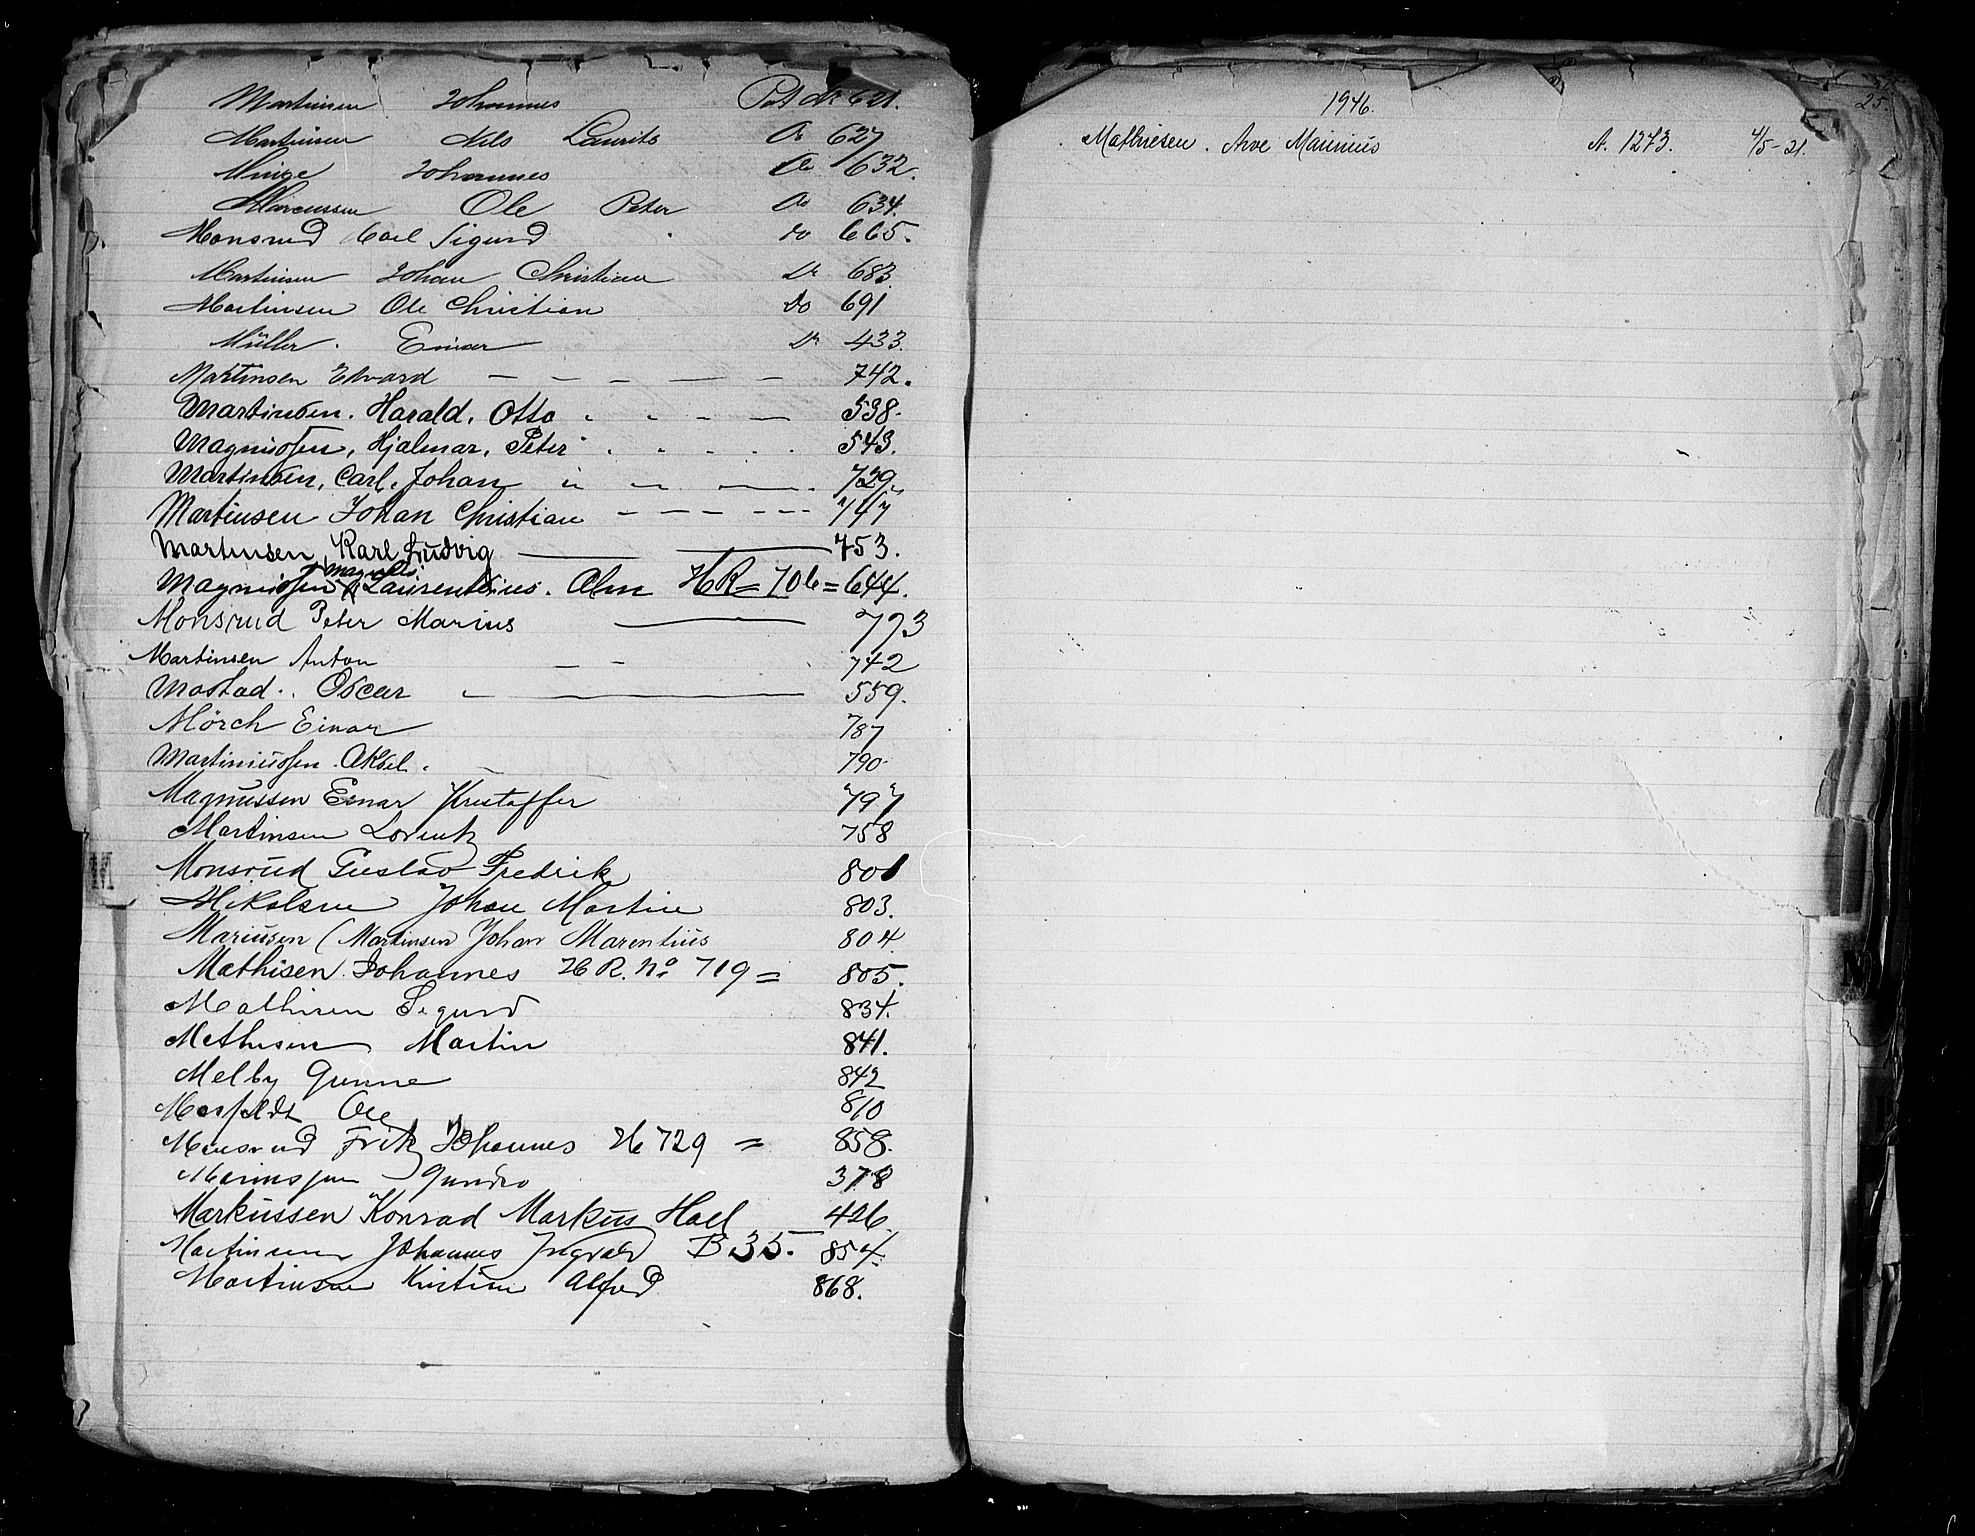 Martinsen Johannes Pat No 621.
Martinsen Nils Laurits Do 627
Minge Johannes Do 632.
Marcussen Ole Peter Do 634.
Monsrud Carl Sigurd do 665.
Martinsen Johan Christian Do 683.
Martinsen Ole Christian Do 691
Müller. Einar Do 433.
Martinsen Edvard — — — — — 742.
Martinsen. Harald. Otto . - - — 538.
Magnussen, Hjalmar, Peter . . . . . 543.
Martinsen, Carl. Johan 729.
Martinsen Johan Christian - — — --- 747
Martinsen, Karl Ludvig — — 753.
Magnus
Magnussen Laurentius. Alm HR = 706 = 644.
Monsrud Peter Marius — 793
Martinsen Anton — — 742
Mostad. Oscar - — 559.
Mörch Einar 787
Martiniussen. Aksel. 790.
Magnussen Einar Kristoffer 797
Martinsen Lorentz 758
Monsrud Gustav Fredrik 801
Mikalsen Johan Martin 803.
Mariusen (Martinsen) Johan Marentius 804
Mathisen Johannes H R. No 719 = 805.
Mathisen Sigurd 834.
Mathisen Martin 841.
Melby Gunne 842
Ole 810
Monsrud Fritz Johannes H 729 = 858.
378
Markussen Konrad Markus Hall 426.
Martinsen Johannes Ingvald B 35. 854.
Martinsen Kristian Alfred 868.
M
25
1946.
Mathiesen. Arve Maurius A. 1273. 4/5-21.
N